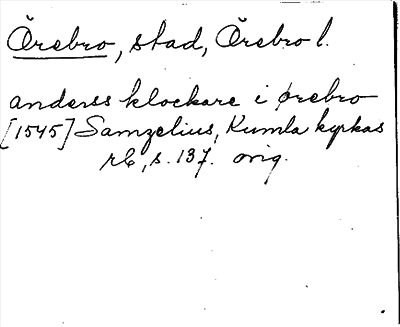 Örebro, stad, Örebro l.
anderss klockare i ørebro
[1545] Samzelius, Kumla kyrkas
rb, s. 137. orig.